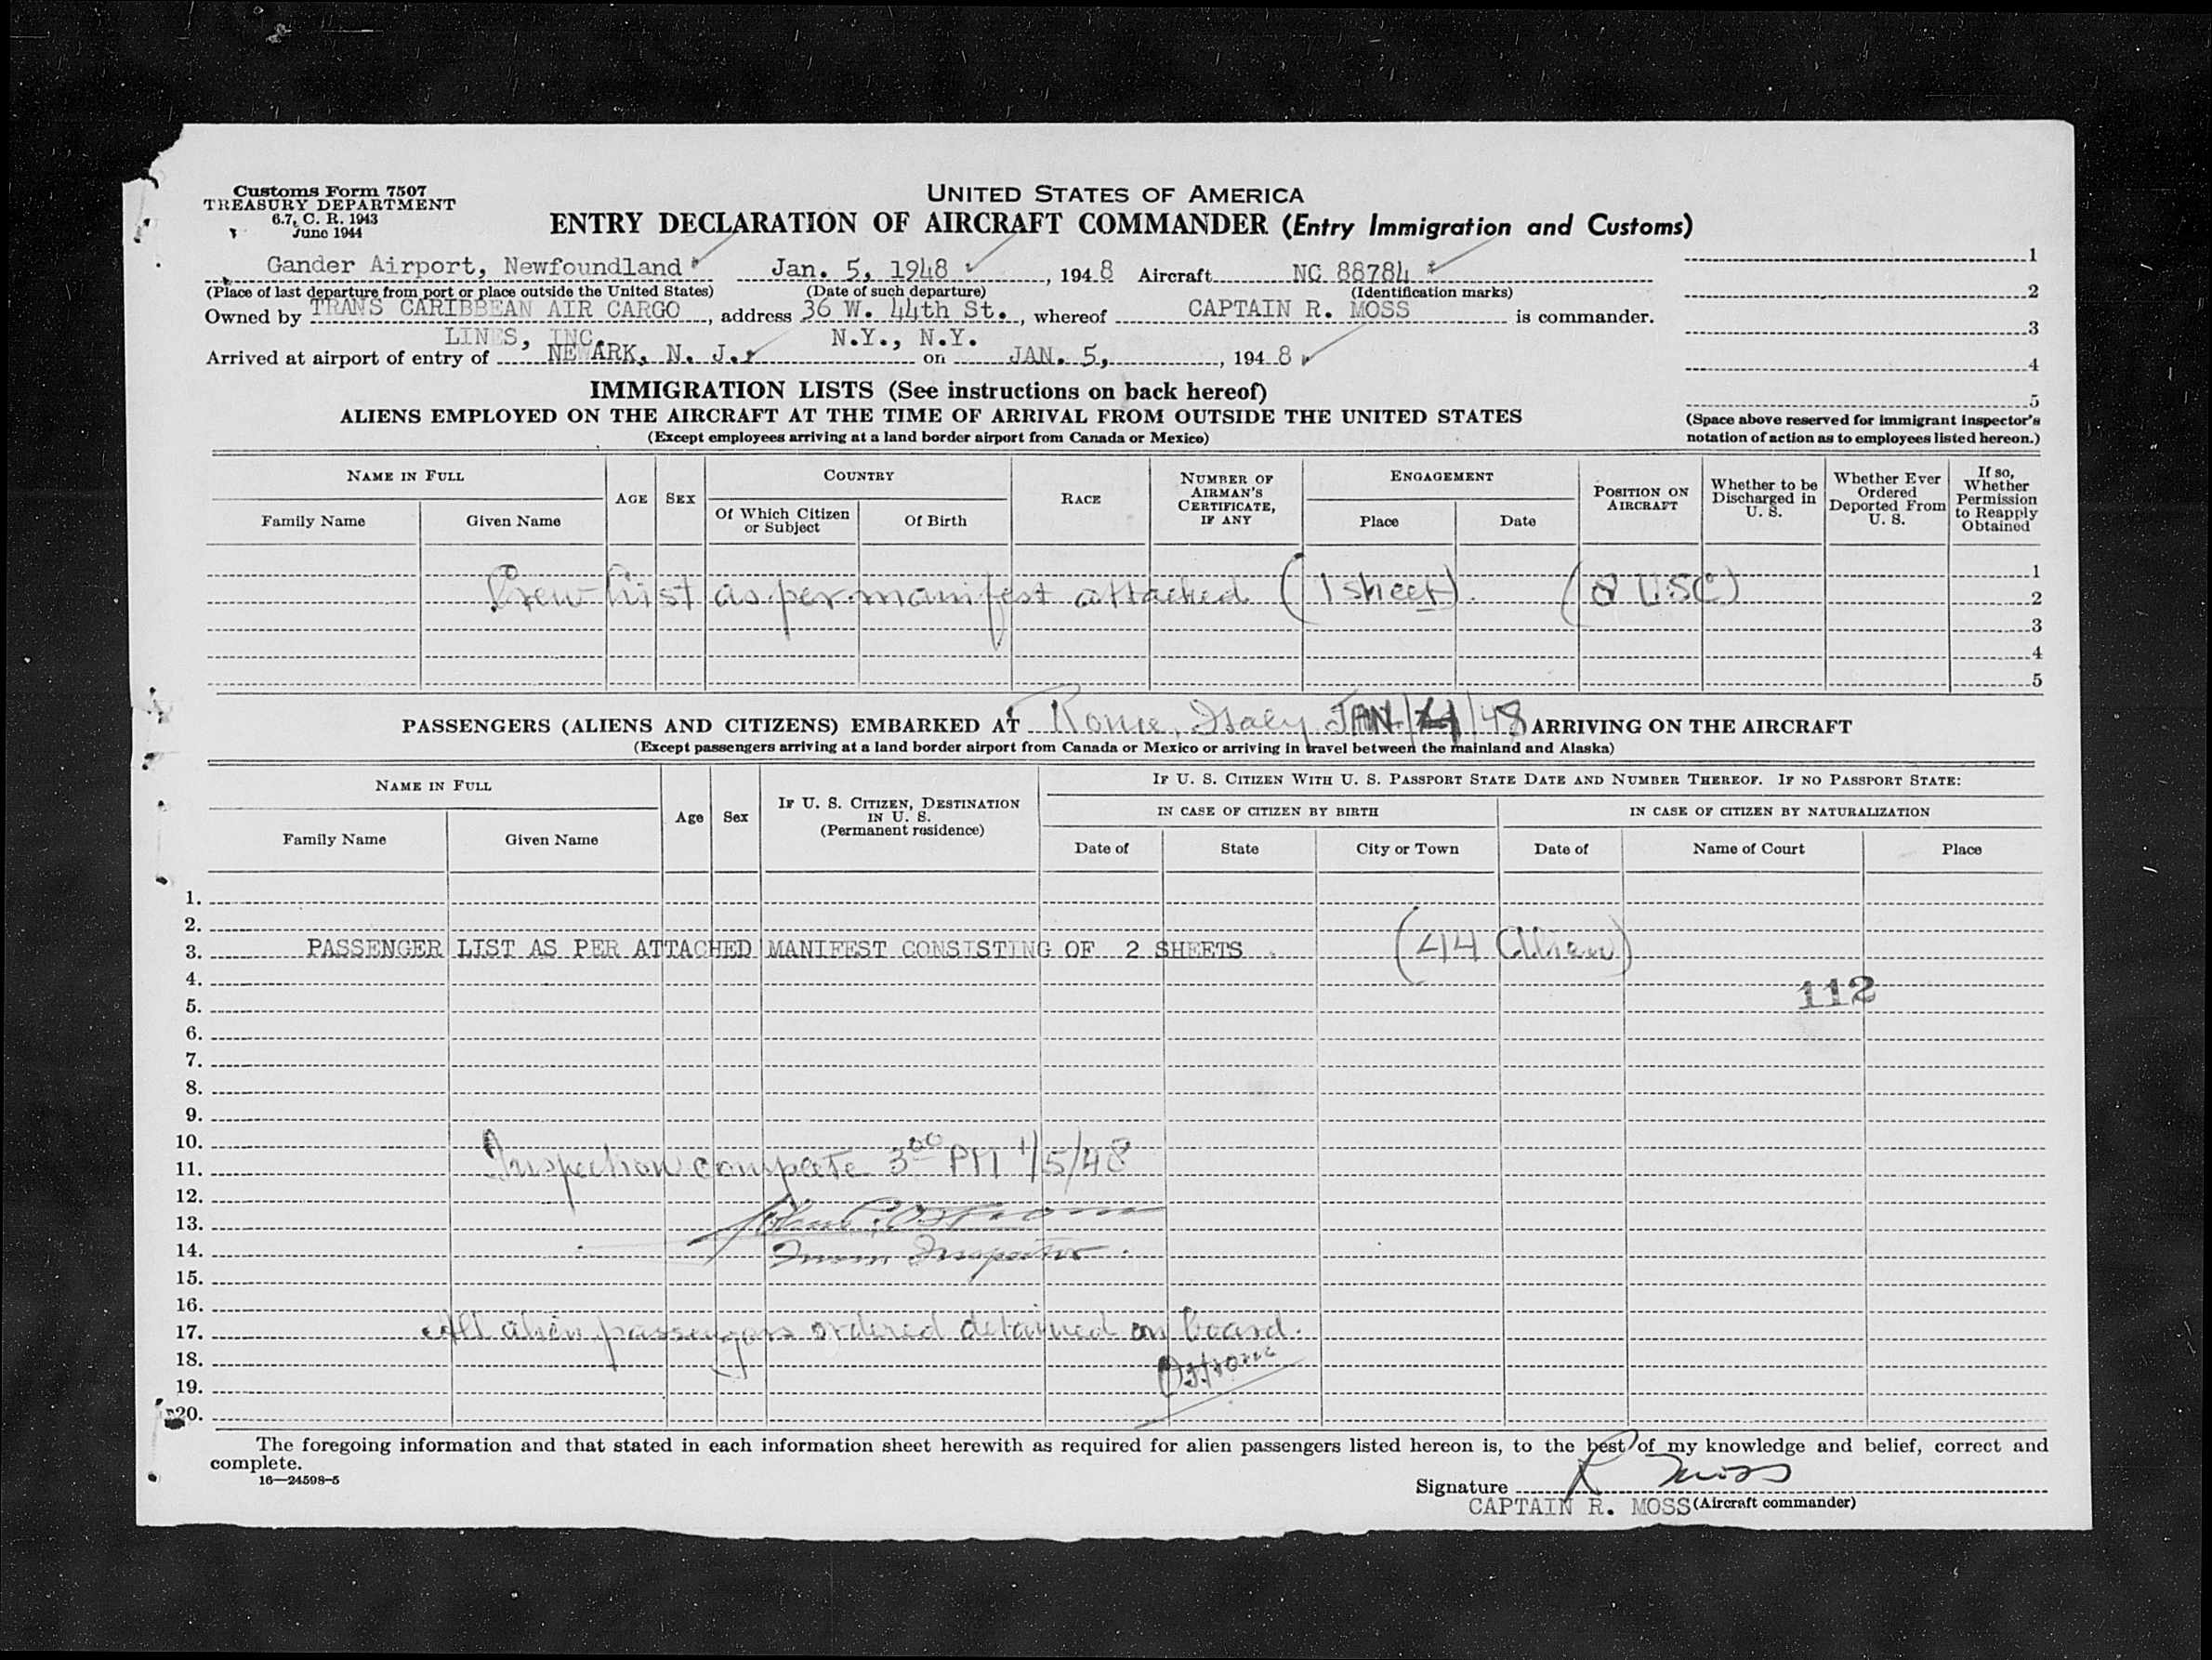 Customs Form 7507
TREASURY DEPARTMENT
6.7, C. R. 1943
June 1944
UNITED STATES OF AMERICA
ENTRY DECLARATION OF AIRCRAFT COMMANDER (Entry Immigration and Customs)
Gander Airport, Newfoundland Jan. 5, 1948, 1948 Aircraft NC 88784
(Place of last departure from port or place outside the United States) (Date of such departure) (Identification marks)
Owned by TRANS CARIBBEAN AIR CARGO, address 36 W. 44th St., whereof CAPTAIN R. MOSS is commander.
LINES, INC. N.Y., N.Y.
Arrived at airport of entry of NEWARK, N. J. on JAN. 5, , 1948
1
2
3
4
5
(Space above reserved for immigrant inspector's
notation of action as to employees listed hereon.)
IMMIGRATION LISTS (See instructions on back hereof)
ALIENS EMPLOYED ON THE AIRCRAFT AT THE TIME OF ARRIVAL FROM OUTSIDE THE UNITED STATES
(Except employees arriving at a land border airport from Canada or Mexico)
NAME IN FULL
Family Name
Given Name
AGE
SEX
COUNTRY
Of Which Citizen
or Subject
Of Birth
RACE
NUMBER OF
AIRMAN'S
CERTIFICATE,
IF ANY
ENGAGEMENT
Place
Date
POSITION ON
AIRCRAFT
Whether to be
Discharged in
U. S.
Whether Ever
Ordered
Deported From
U. S.
If so,
Whether
Permission
to Reapply
Obtained
1
Crew list as per manifest attached (1 sheet). (8 USC)
2
3
4
5
PASSENGERS (ALIENS AND CITIZENS) EMBARKED AT Rome, Italy JAN/4/48 ARRIVING ON THE AIRCRAFT
(Except passengers arriving at a land border airport from Canada or Mexico or arriving in travel between the mainland and Alaska)
NAME IN FULL
Family Name
Given Name
Age
Sex
IF U. S. CITIZEN, DESTINATION
IN U. S.
(Permanent residence)
IF U. S. CITIZEN WITH U. S. PASSPORT STATE DATE AND NUMBER THEREOF. IF NO PASSPORT STATE:
IN CASE OF CITIZEN BY BIRTH
IN CASE OF CITIZEN BY NATURALIZATION
Date of
State
City or Town
Date of
Name of Court
Place
1.
2.
3. PASSENGER LIST AS PER ATTACHED MANIFEST CONSISTING OF 2 SHEETS (44 Alien)
4.
112
5.
6.
7.
8.
9.
10.
11. Inspection compate 3 00 PM 1/5/48
12.
13.
14. Immi Inspector.
15.
16.
17. All alien passengers ordered detained on board.
18. Ostrone
19.
20.
The foregoing information and that stated in each information sheet herewith as required for alien passengers listed hereon is, to the best of my knowledge and belief, correct and
complete.
16—24598-5
Signature R Moss
CAPTAIN R. MOSS (Aircraft commander)